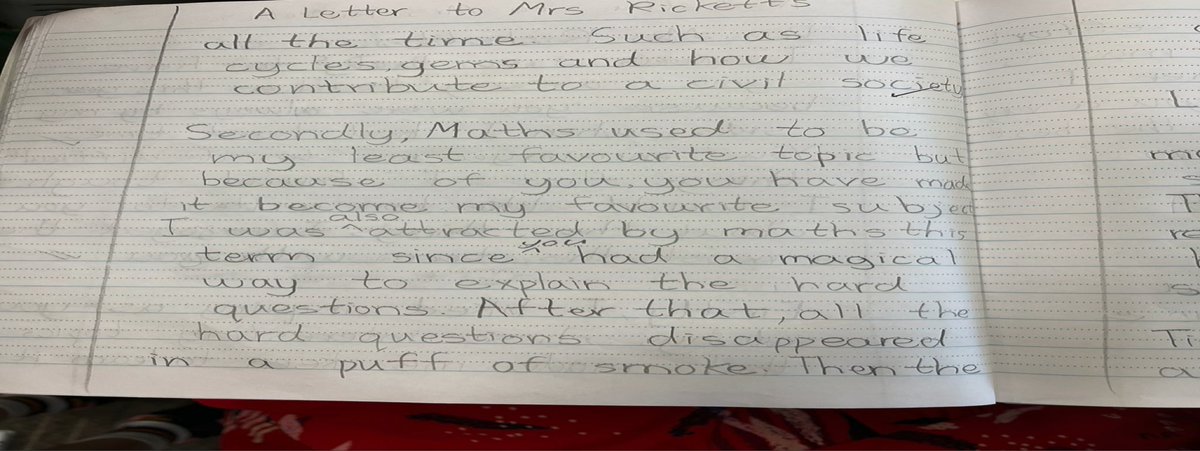 A Letter to Mrs Ricketts
all the time. Such as life
cycles, germs and how we
contribute to a civil society
Secondly, Maths used to be
my least favourite topic but
because of you, you have made
it become my favourite subject
I was ^also attracted by maths this
term since ^you had a magical
way to explain the hard
questions. After that, all the
hard questions disappeared
in a puff of smoke. Then the